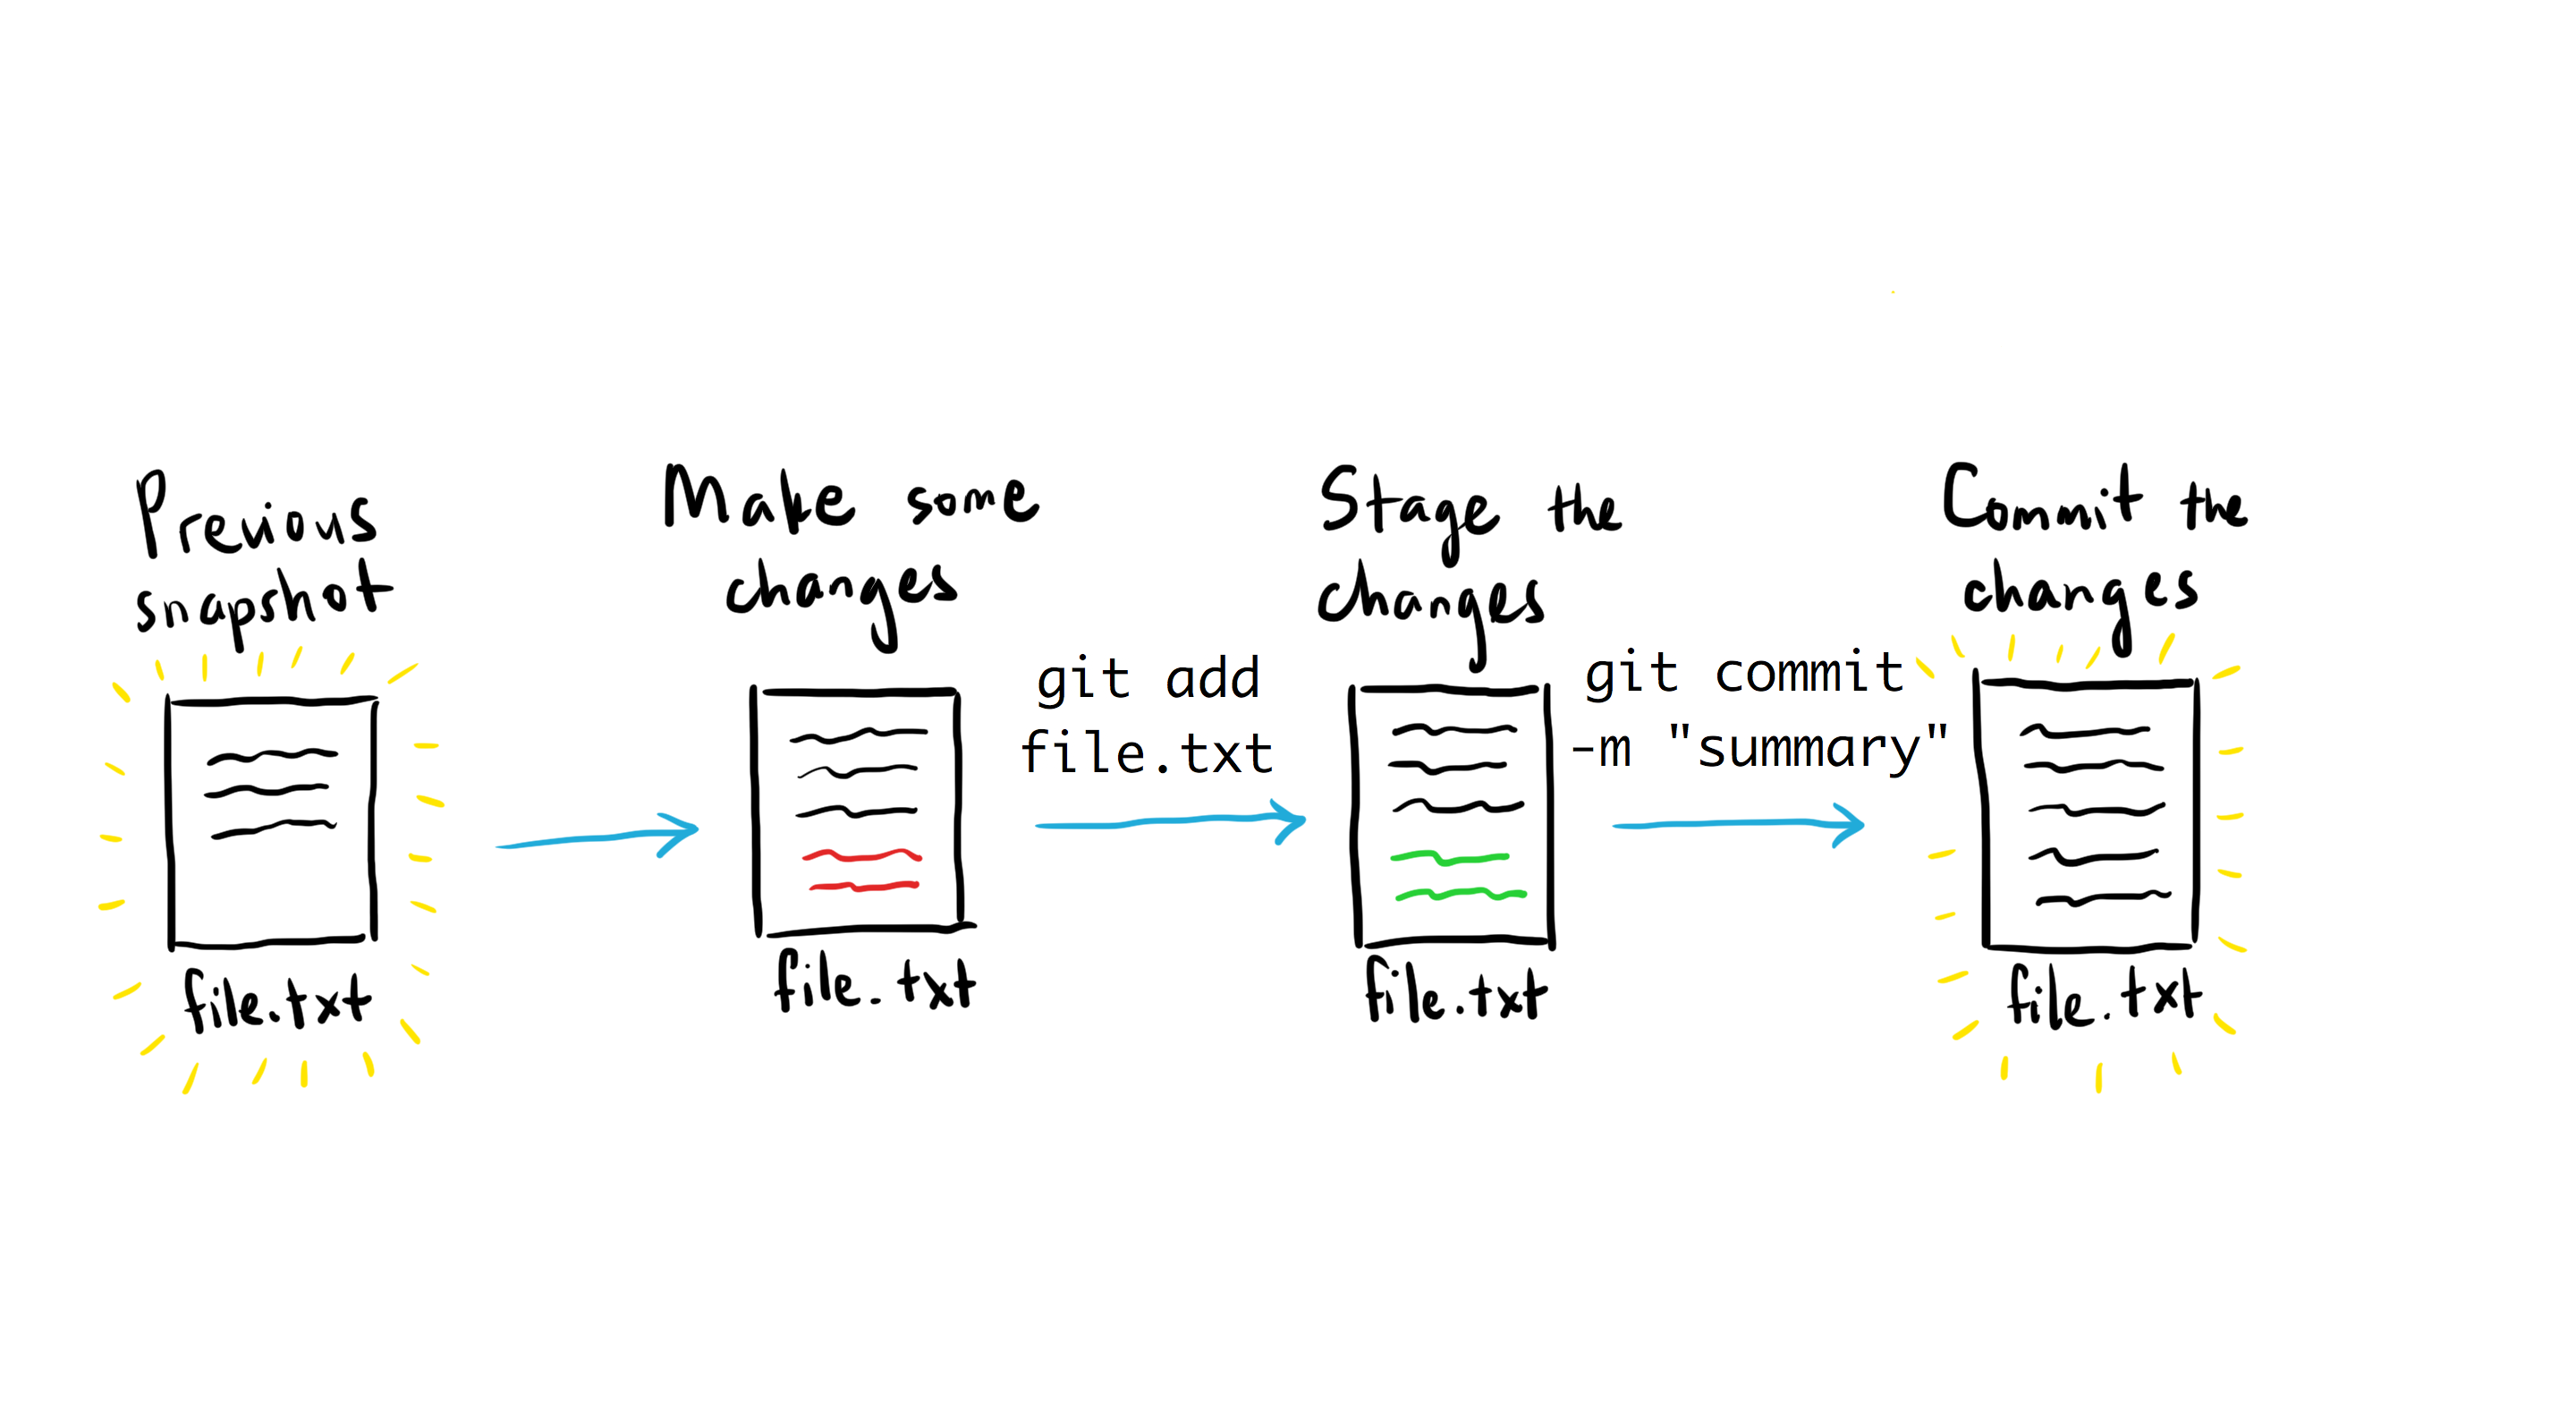 Previous
snapshot
file.txt
Make some
changes
file.txt
git add
file.txt
Stage the
changes
file.txt
git commit
-m "summary"
Commit the
changes
file.txt